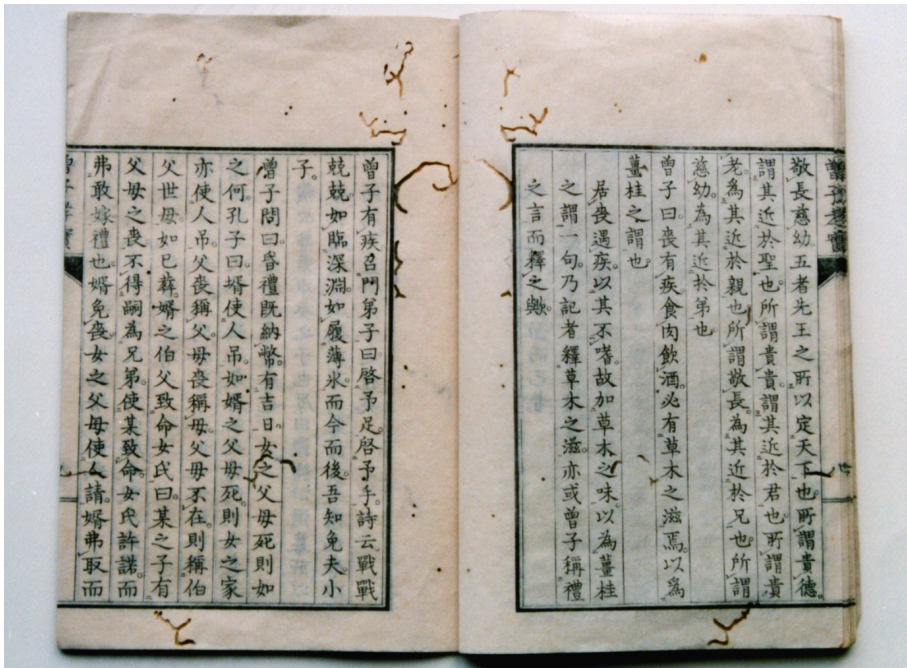 敬長慈幼五者先王之所以定天下也所謂貴德
謂其近於聖也所謂貴貴謂其近於君也所謂貴
老為其近於親也所謂敬長為其近於兄也所謂
慈幼為其近於弟也
曾子曰喪有疾食肉飲酒必有草木之滋焉以為
薑桂之謂也
居喪遇疾以其不嗜故加草木之味以為薑桂
之謂一句乃記者釋草木之滋亦或曾子稱禮
之言而釋之歟
曾子有疾召門弟子曰啓予足啓予手詩云戰戰
兢兢如臨深淵如履薄氷而今而後吾知免夫小
子
曾子問曰昏禮既納幣有吉日女之父母死則如
之何孔子曰壻使人吊如壻之父母死則女之家
亦使人吊父喪稱父母喪稱母父母不在則稱伯
父世母如已葬壻之伯父致命女氏曰某之子有
父母之喪不得嗣為兄弟使某致命女氏許諾而
弗敢嫁禮也壻免喪女之父母使人請壻弗取而